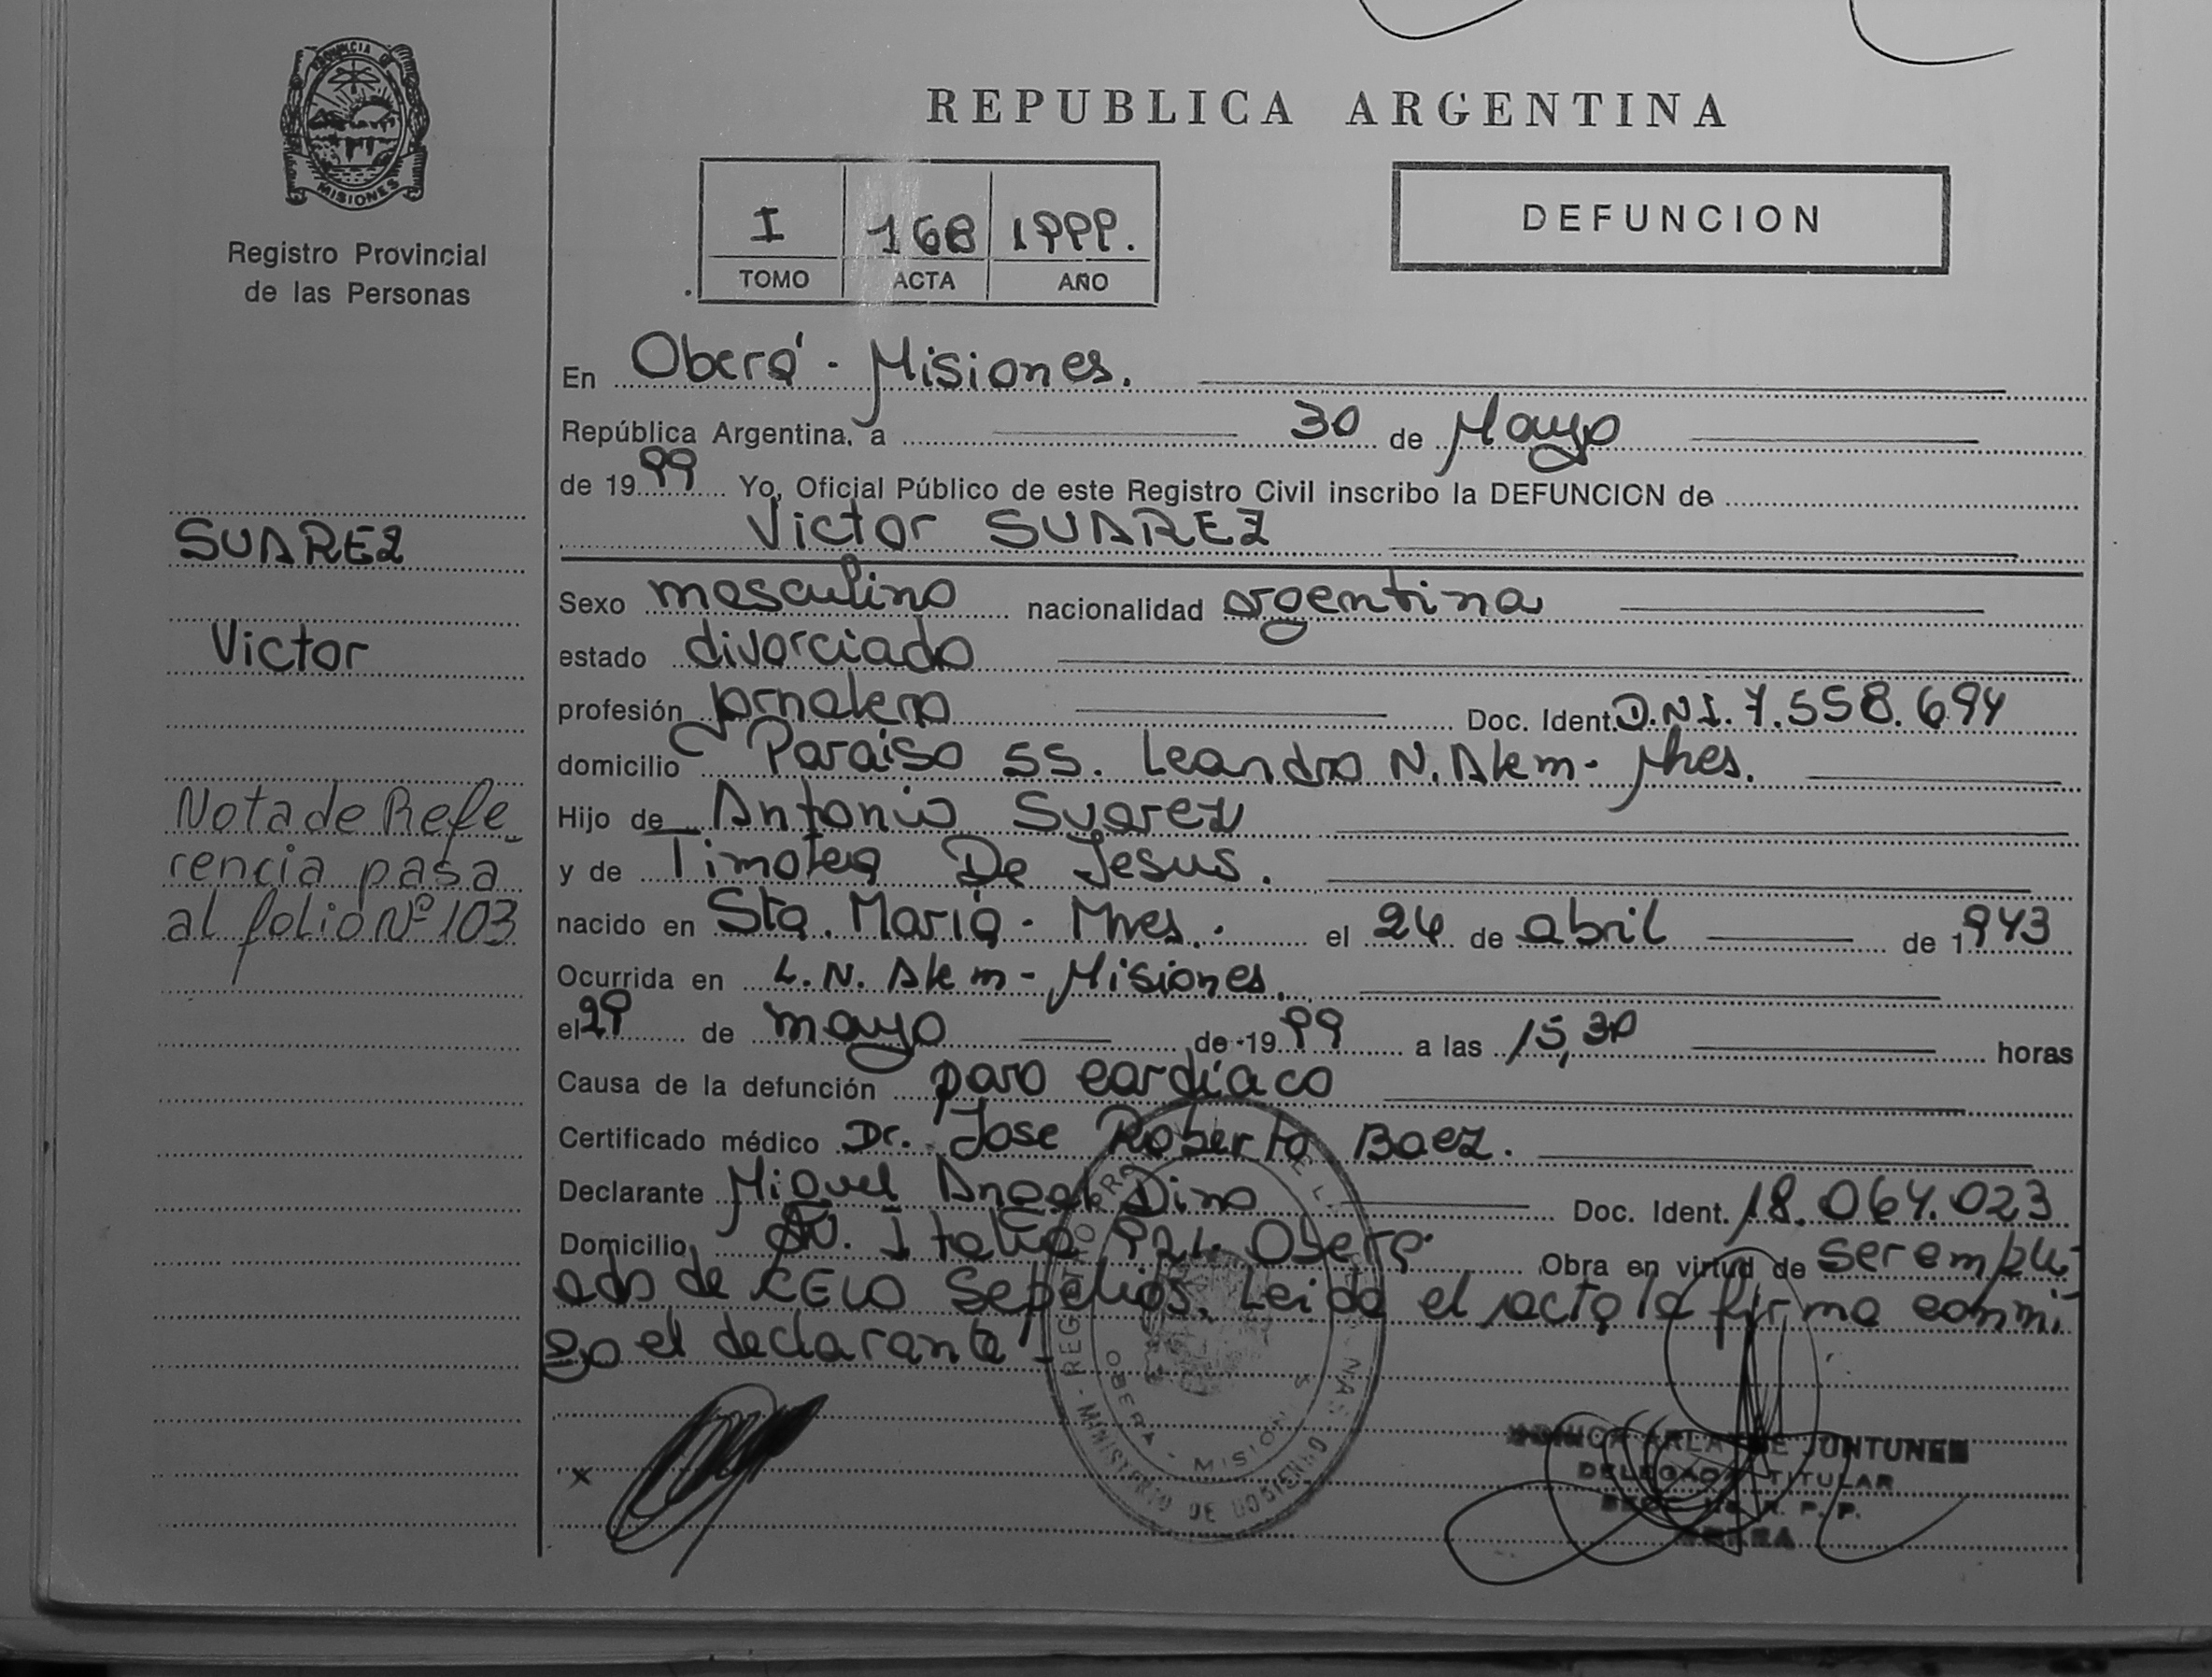 PROVINCIA DE
MISIONES
Registro Provincial
de las Personas
REPUBLICA ARGENTINA
I 168 1999.
TOMO ACTA AÑO
DEFUNCION
En Oberá - Misiones.
República Argentina, a 30 de Mayo
de 1999 Yo, Oficial Público de este Registro Civil inscribo la DEFUNCION de
Victor SUAREZ
SUAREZ
Victor
Nota de Refe-
rencia pasa
al folio Nº 103
Sexo masculino nacionalidad argentina
estado divorciado
profesión jornalero Doc. Ident. D.N.I. 7.558.694
domicilio Paraiso SS. Leandro N. Alem - Mnes.
Hijo de Antonio Suarez
y de Timotea De Jesus.
nacido en Sta. Maria - Mnes. el 24 de abril de 1943
Ocurrida en L.N. Alem - Misiones.
el 29 de mayo de 1999 a las 15,30 horas
Causa de la defunción paro cardíaco
Certificado médico Dr. Jose Roberto Baez.
Declarante Miguel Angel Dino Doc. Ident. 18.064.023
Domicilio Av. Italia 921. Oberá Obra en virtud de ser emple-
ado de CELO Sepelios. Leida el acta la firma conmi-
go el declarante
OBERA - MISIONES
MINISTERIO DE GOBIERNO
JUNTUNEN
DELEGADA TITULAR
R. P. P.